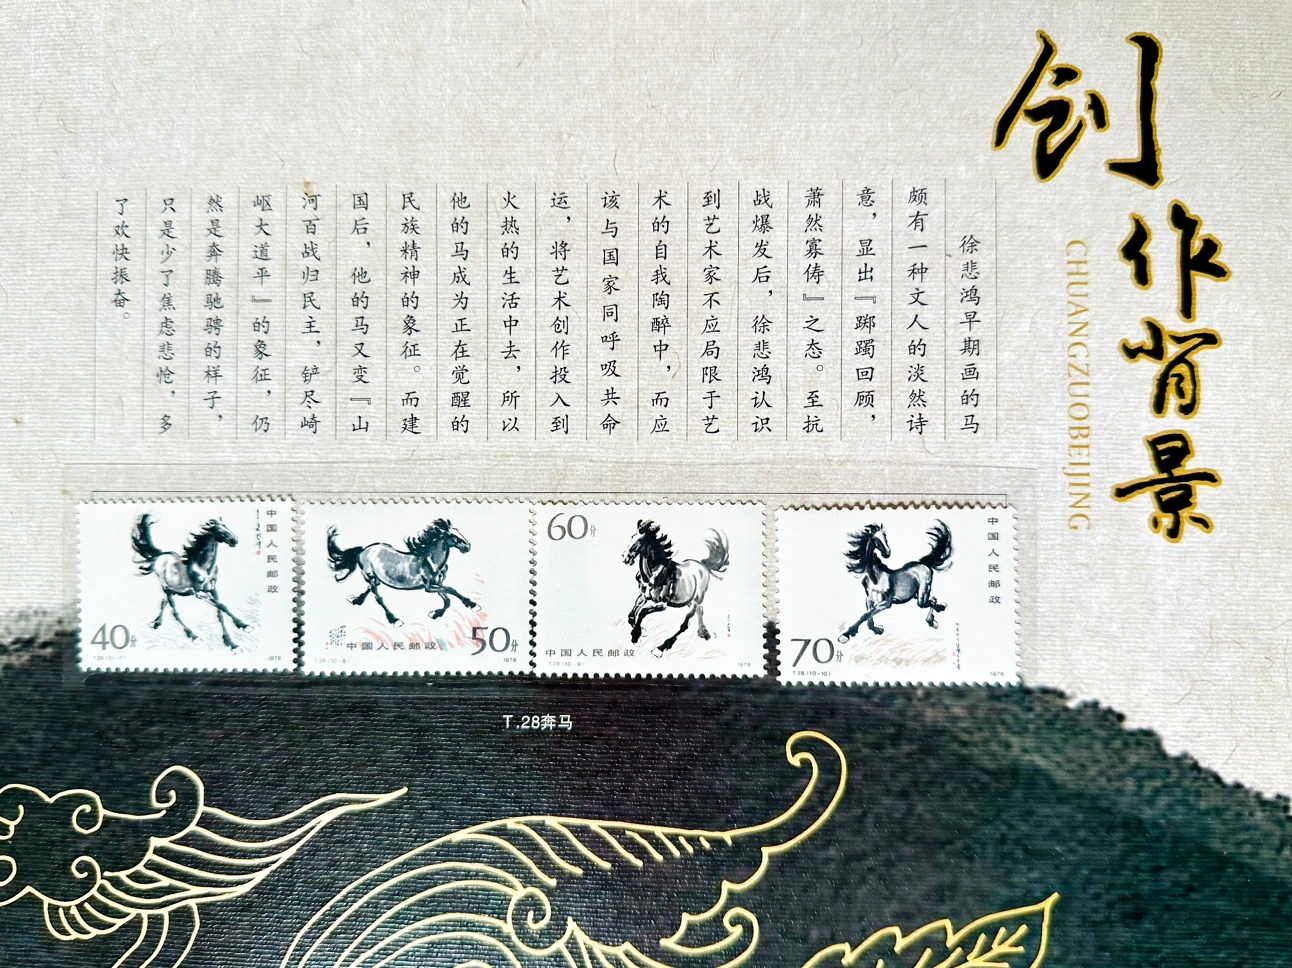 创作背景
CHUANGZUOBEIJING
徐悲鸿早期画的马
颇有一种文人的淡然诗
意，显出『踯躅回顾，
萧然寡俦』之态。至抗
战爆发后，徐悲鸿认识
到艺术家不应局限于艺
术的自我陶醉中，而应
该与国家同呼吸共命
运，将艺术创作投入到
火热的生活中去，所以
他的马成为正在觉醒的
民族精神的象征。而建
国后，他的马又变『山
河百战归民主，铲尽崎
岖大道平』的象征，仍
然是奔腾驰骋的样子，
只是少了焦虑悲怆，多
了欢快振奋。
中国人民邮政
40分
T.28.(10-7)
1978
中国人民邮政
50分
T.28.(10-8)
1978
60分
中国人民邮政
T.28.(10-9)
1978
中国人民邮政
70分
T.28.(10-10)
1978
T.28奔马